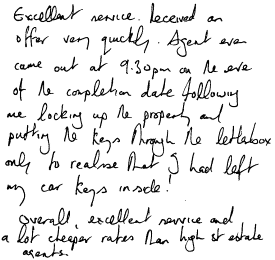 Excellent service. Received an
offer very quickly. Agent even
came out at 9.30pm on the eve
of the completion date following
me locking up the property and
putting the keys through the letterbox
only to realise that I had left
my car keys inside!
Overall, excellent service and
a lot cheaper rates than high st estate
agents.